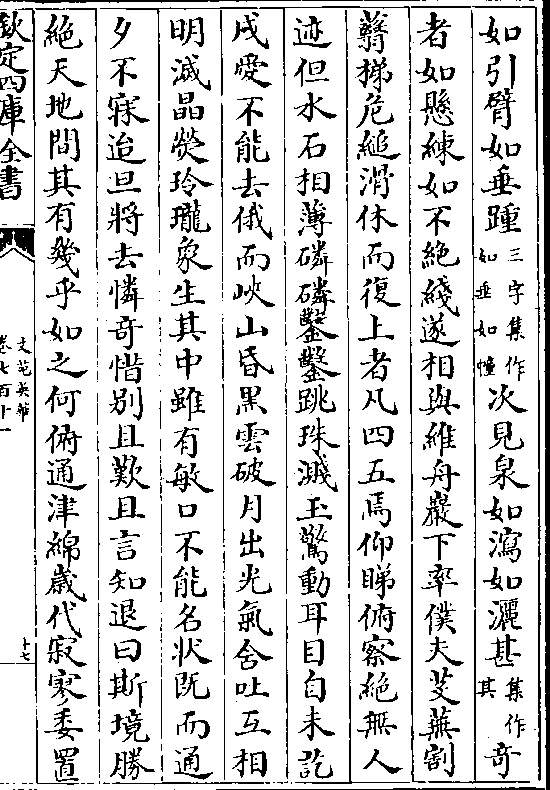 如引臂如垂踵三字集作如垂如幢次見泉如瀉如灑甚集作其奇
者如懸練如不絶綫遂相與維舟巖下率僕夫芟蕪割
翳梯危縋滑休而復上者凡四五焉仰睇俯察絶無人
迹但水石相薄磷磷鑿鑿跳珠濺玉驚動耳目自未訖
戌愛不能去俄而峽山昏黒雲破月出光氣含吐互相
明滅晶熒玲瓏象生其中雖有敏口不能名狀既而通
夕不寐迨旦將去憐奇惜別且歎且言知退曰斯境勝
絶天地間其有幾乎如之何俯通津綿歲代寂寥委置
欽定四庫全書
文苑英華
卷七百十一
十七